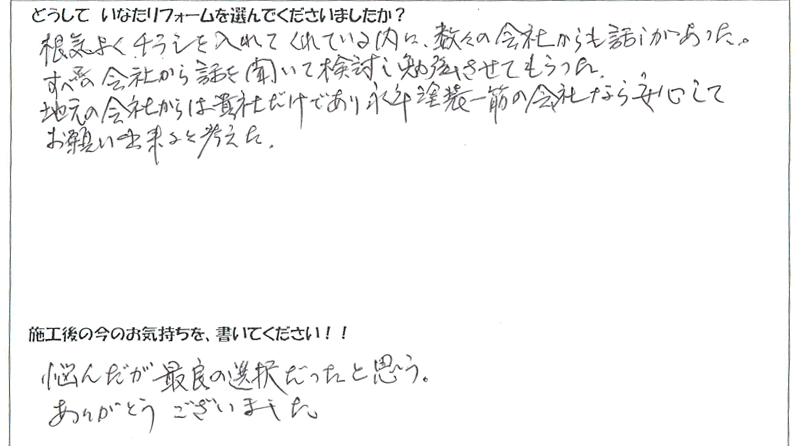 どうして いなたリフォームを選んでくださいましたか？
根気よくチラシを入れてくれている内に、数々の会社からも話しがあった。
すべての会社から話を聞いて検討し勉強させてもらった。
地元の会社からは貴社だけであり永年塗装一筋の会社なら安心して
お願い出来ると考えた。
施工後の今のお気持ちを、書いてください！！
悩んだが最良の選択だったと思う。
ありがとうございました。